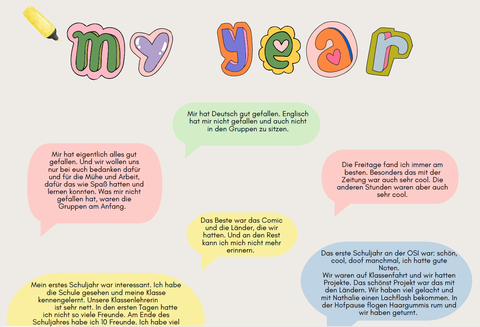 my year
Mir hat Deutsch gut gefallen. Englisch
hat mir nicht gefallen und auch nicht
in den Gruppen zu sitzen.
Mir hat eigentlich alles gut
gefallen. Und wir wollen uns
nur bei euch bedanken dafür
und für die Mühe und Arbeit,
dafür das wie Spaß hatten und
lernen konnten. Was mir nicht
gefallen hat, waren die
Gruppen am Anfang.
Die Freitage fand ich immer am
besten. Besonders das mit der
Zeitung war auch sehr cool. Die
anderen Stunden waren aber auch
sehr cool.
Das Beste war das Comic
und die Länder, die wir
hatten. Und an den Rest
kann ich mich nicht mehr
erinnern.
Das erste Schuljahr an der OSI war: schön,
cool, doof manchmal, ich hatte gute
Noten.
Wir waren auf Klassenfahrt und wir hatten
Projekte. Das schönst Projekt war das mit
den Ländern. Wir haben viel gelacht und
mit Nathalie einen Lachflash bekommen. In
der Hofpause flogen Haargummis rum und
wir haben geturnt.
Mein erstes Schuljahr war interessant. Ich habe
die Schule gesehen und meine Klasse
kennengelernt. Unsere Klassenlehrerin
ist sehr nett. In den ersten Tagen hatte
ich nicht so viele Freunde. Am Ende des
Schuljahres habe ich 10 Freunde. Ich habe viel